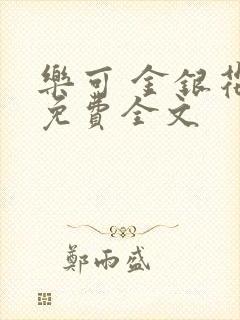 樂可 金銀花
免費全文
鄭雨盛